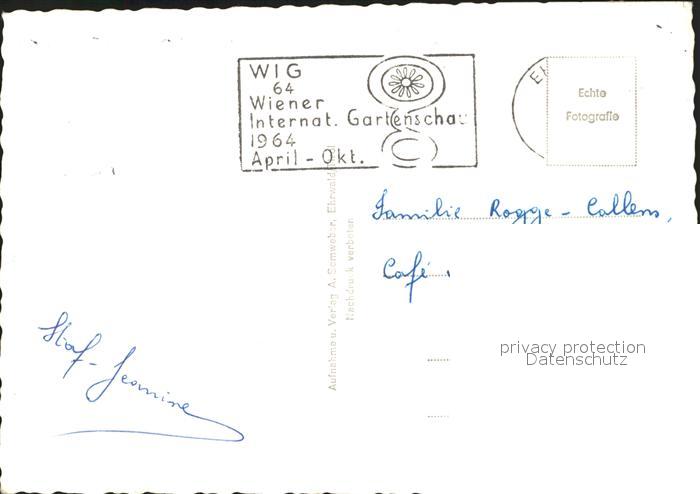 WIG
64
Wiener
Internat. Gartenschau
1964
April - Okt.
Echte
Fotografie
Familie Rogge - Callens,
Café,
Aufnahme u. Verlag A. Somweber, Ehrwald
Nachdruck verboten
privacy protection
Datenschutz
Staf - Jeanine